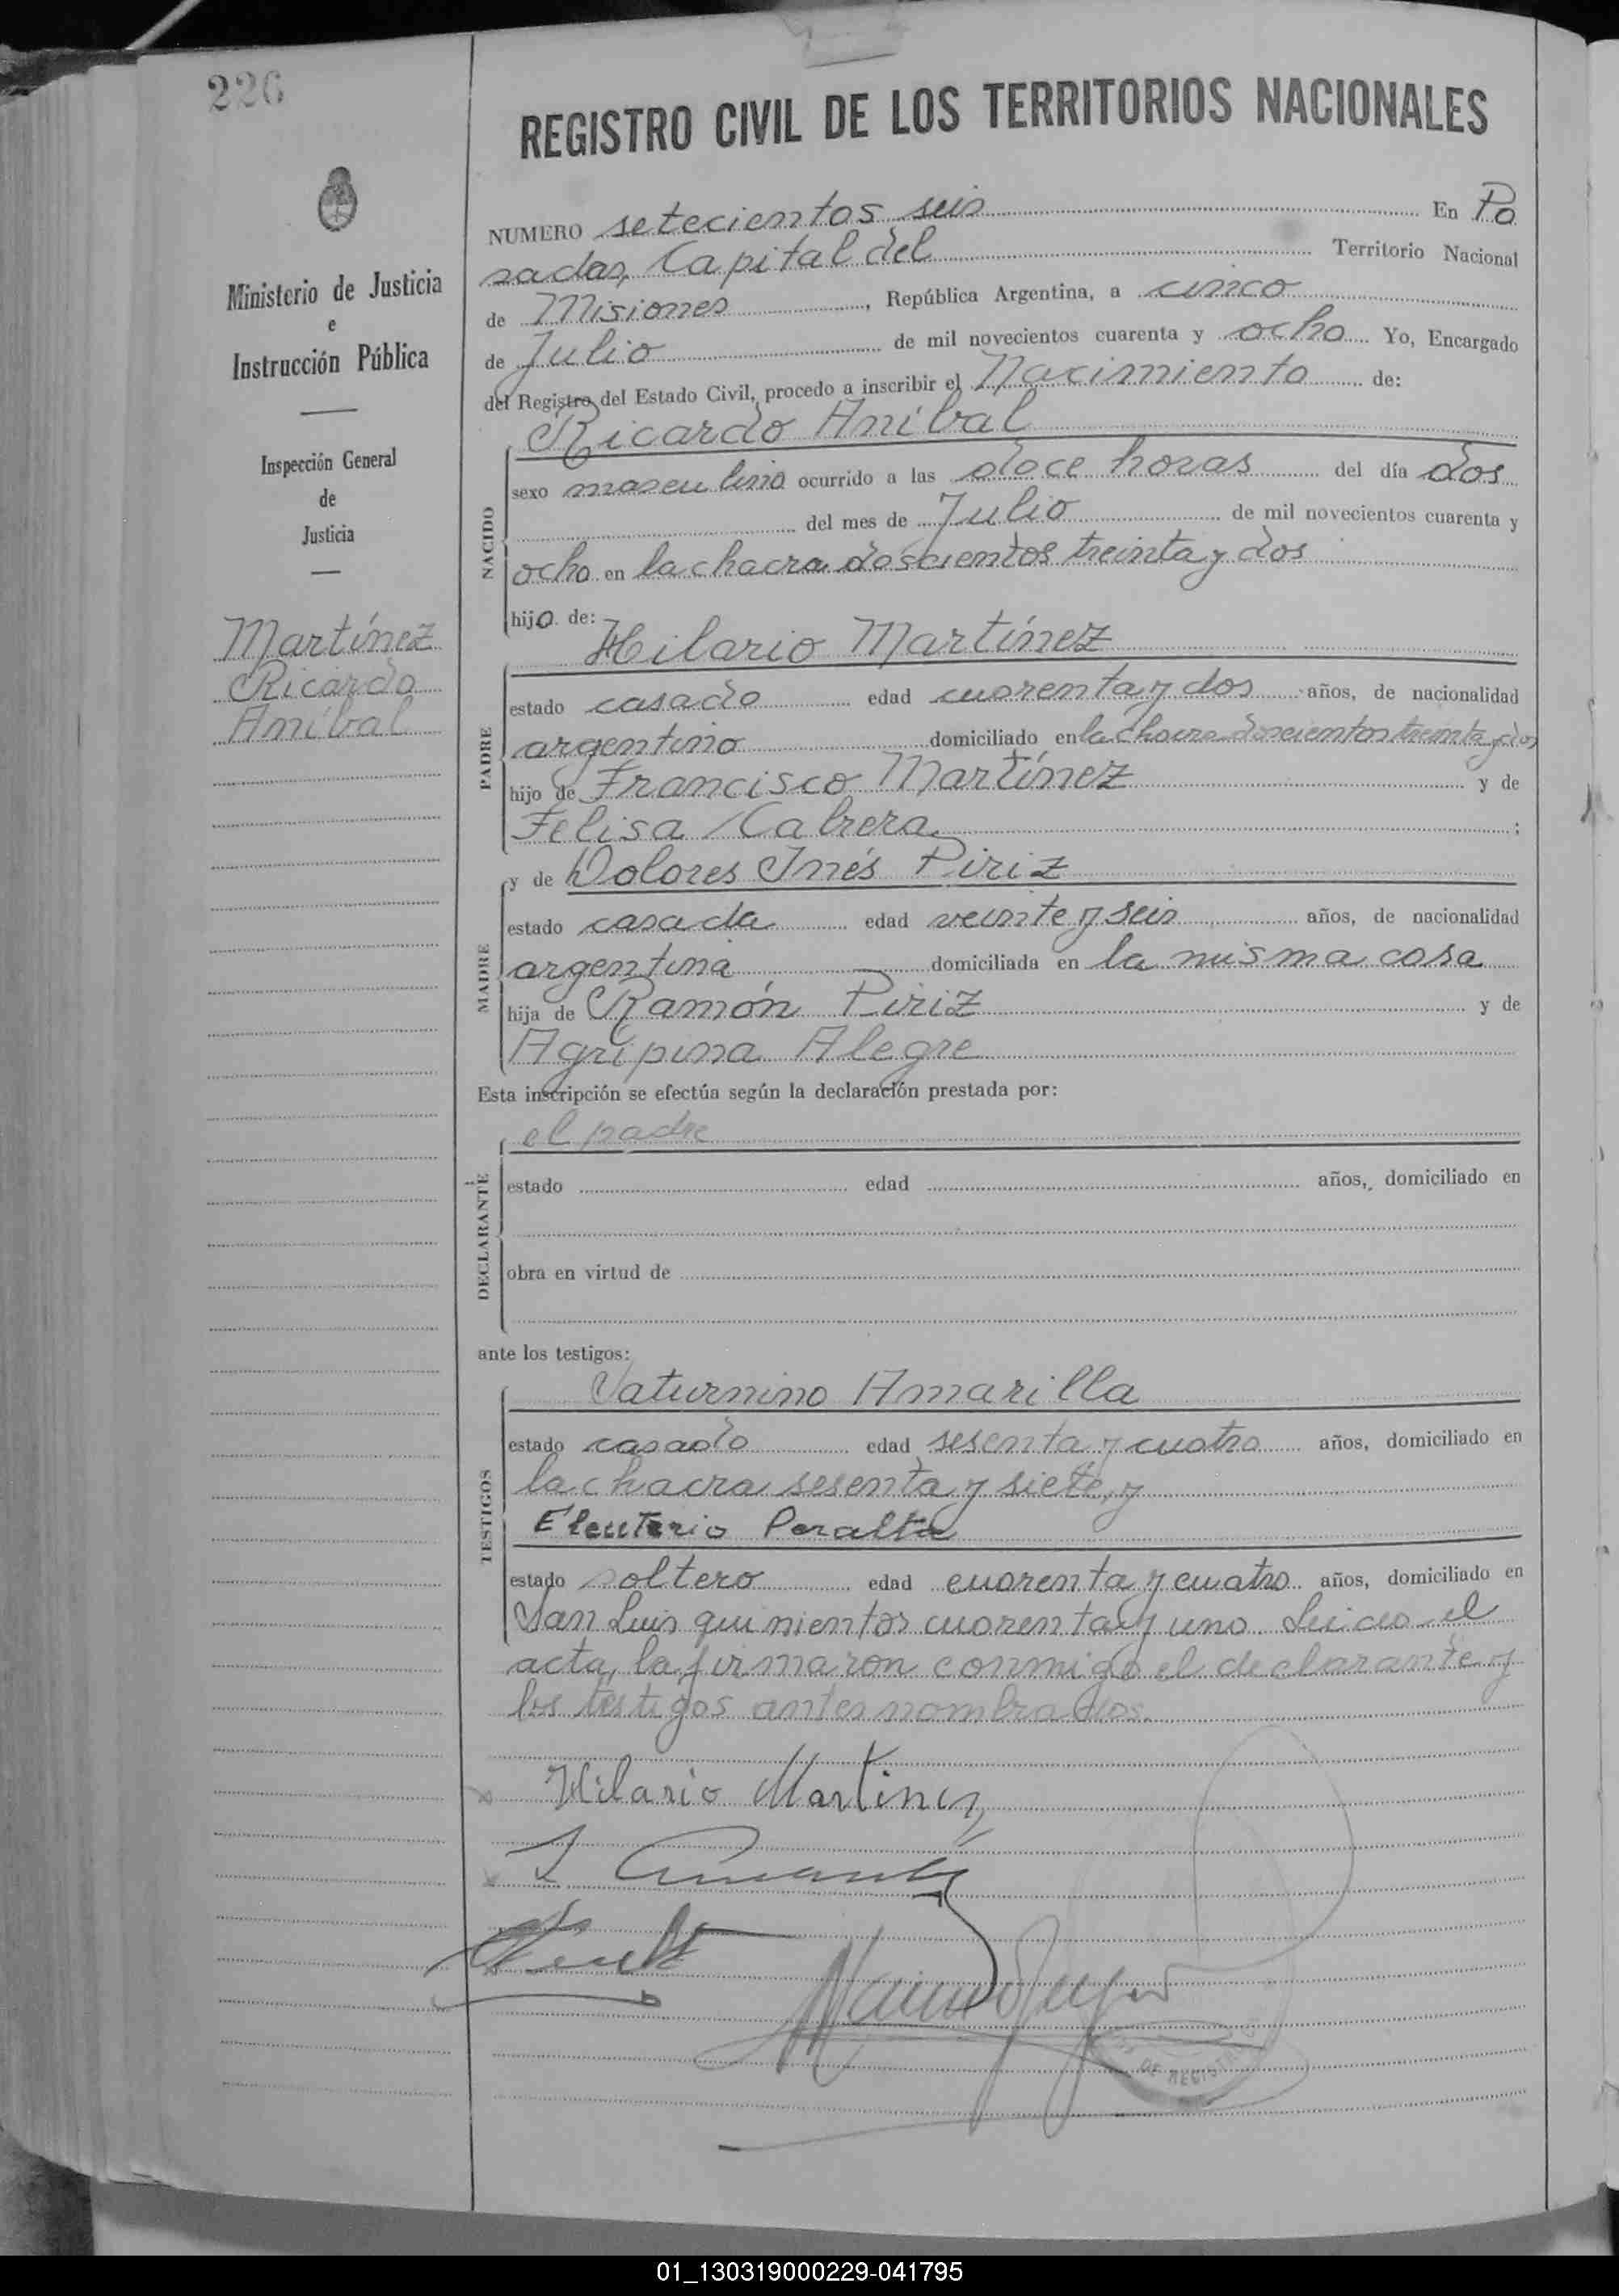 226
REGISTRO CIVIL DE LOS TERRITORIOS NACIONALES
Ministerio de Justicia
e
Instrucción Pública
Inspección General
de
Justicia
Martínez
Ricardo
Aníbal
NUMERO setecientos seis En Po
sadas, Capital del Territorio Nacional
de Misiones, República Argentina, a cinco
de Julio de mil novecientos cuarenta y ocho Yo, Encargado
del Registro del Estado Civil, procedo a inscribir el Nacimiento de:
Ricardo Aníbal
NACIDO
sexo masculino ocurrido a las doce horas del día dos
del mes de Julio de mil novecientos cuarenta y
ocho en la chacra doscientos treinta y dos
hijo de:
Hilario Martínez
PADRE
estado casado edad cuarenta y dos años, de nacionalidad
argentino domiciliado en la chacra doscientos treinta y dos
hijo de Francisco Martínez y de
Felisa Cabrera ;
y de Dolores Inés Piriz
MADRE
estado casada edad veinte y seis años, de nacionalidad
argentina domiciliada en la misma casa
hija de Ramón Piriz y de
Agripina Alegre
Esta inscripción se efectúa según la declaración prestada por:
el padre
DECLARANTE
estado edad años, domiciliado en
obra en virtud de
ante los testigos:
Saturnino Amarilla
TESTIGOS
estado casado edad sesenta y cuatro años, domiciliado en
la chacra sesenta y siete, y
Eleuterio Peralta
estado soltero edad cuarenta y cuatro años, domiciliado en
San Luis quinientos cuarenta y uno. Leida el
acta, la firmaron conmigo el declarante y
los testigos antes nombrados.
Hilario Martinez
DE REGIST
01_130319000229-041795